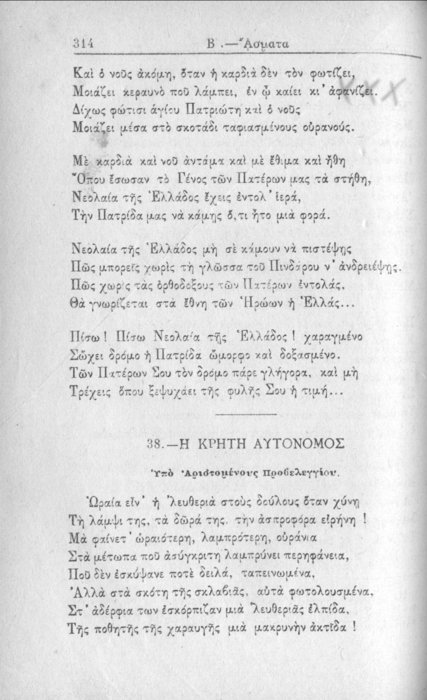 314 Β΄.—Ἄσματα
Καὶ ὁ νοῦς ἀκόμη, ὅταν ἡ καρδιὰ δὲν τὸν φωτίζει,
Μοιάζει κεραυνὸ ποῦ λάμπει, ἐν ᾧ καίει κι᾽ ἀφανίζει.
Δίχως φώτισι ἁγίου Πατριώτη καὶ ὁ νοῦς
Μοιάζει μέσα στὸ σκοτάδι ταφιασμένους οὐρανούς.
Μὲ καρδιὰ καὶ νοῦ ἀντάμα καὶ μὲ ἔθιμα καὶ ἤθη
Ὅπου ἔσωσαν τὸ Γένος τῶν Πατέρων μας τὰ στήθη,
Νεολαία τῆς Ἑλλάδος ἔχεις ἐντολ᾽ ἱερά,
Τὴν Πατρίδα μας νὰ κάμῃς ὅ,τι ἦτο μιὰ φορά.
Νεολαία τῆς Ἑλλάδος μὴ σὲ κάμουν νὰ πιστέψῃς
Πῶς μπορεῖς χωρὶς τὴ γλῶσσα τοῦ Πινδάρου ν᾽ ἀνδρειέψῃς.
Πῶς χωρὶς τὰς ὀρθοδόξους τῶν Πατέρων ἐντολάς.
Θὰ γνωρίζεται στὰ ἔθνη τῶν Ἡρώων ἡ Ἑλλάς...
Πίσω! Πίσω Νεολαία τῆς Ἑλλάδος! χαραγμένο
Σώχει δρόμο ἡ Πατρίδα ὤμορφο καὶ δοξασμένο.
Τῶν Πατέρων Σου τὸν δρόμο πάρε γλήγορα, καὶ μὴ
Τρέχεις ὅπου ξεψυχάει τῆς φυλῆς Σου ἡ τιμή...
38.—Η ΚΡΗΤΗ ΑΥΤΟΝΟΜΟΣ
Ὑπὸ Ἀριστομένους Προβελεγγίου.
Ὡραία εἶν᾽ ἡ λευθεριὰ στοὺς δούλους ὅταν χύνῃ
Τὴ λάμψι της, τὰ δῶρά της, τὴν ἀσπροφόρα εἰρήνη!
Μὰ φαίνετ᾽ ὡραιότερη, λαμπρότερη, οὐράνια
Στὰ μέτωπα ποῦ ἀσύγκριτη λαμπρύνει περηφάνεια,
Ποῦ δὲν ἐσκύψανε ποτὲ δειλά, ταπεινωμένα,
Ἀλλὰ στὰ σκότη τῆς σκλαβιᾶς, αὐτὰ φωτολουσμένα,
Στ᾽ ἀδέρφια των ἐσκόρπιζαν μιὰ λευθεριᾶς ἐλπίδα,
Τῆς ποθητῆς τῆς χαραυγῆς μιὰ μακρυνὴν ἀκτῖδα!